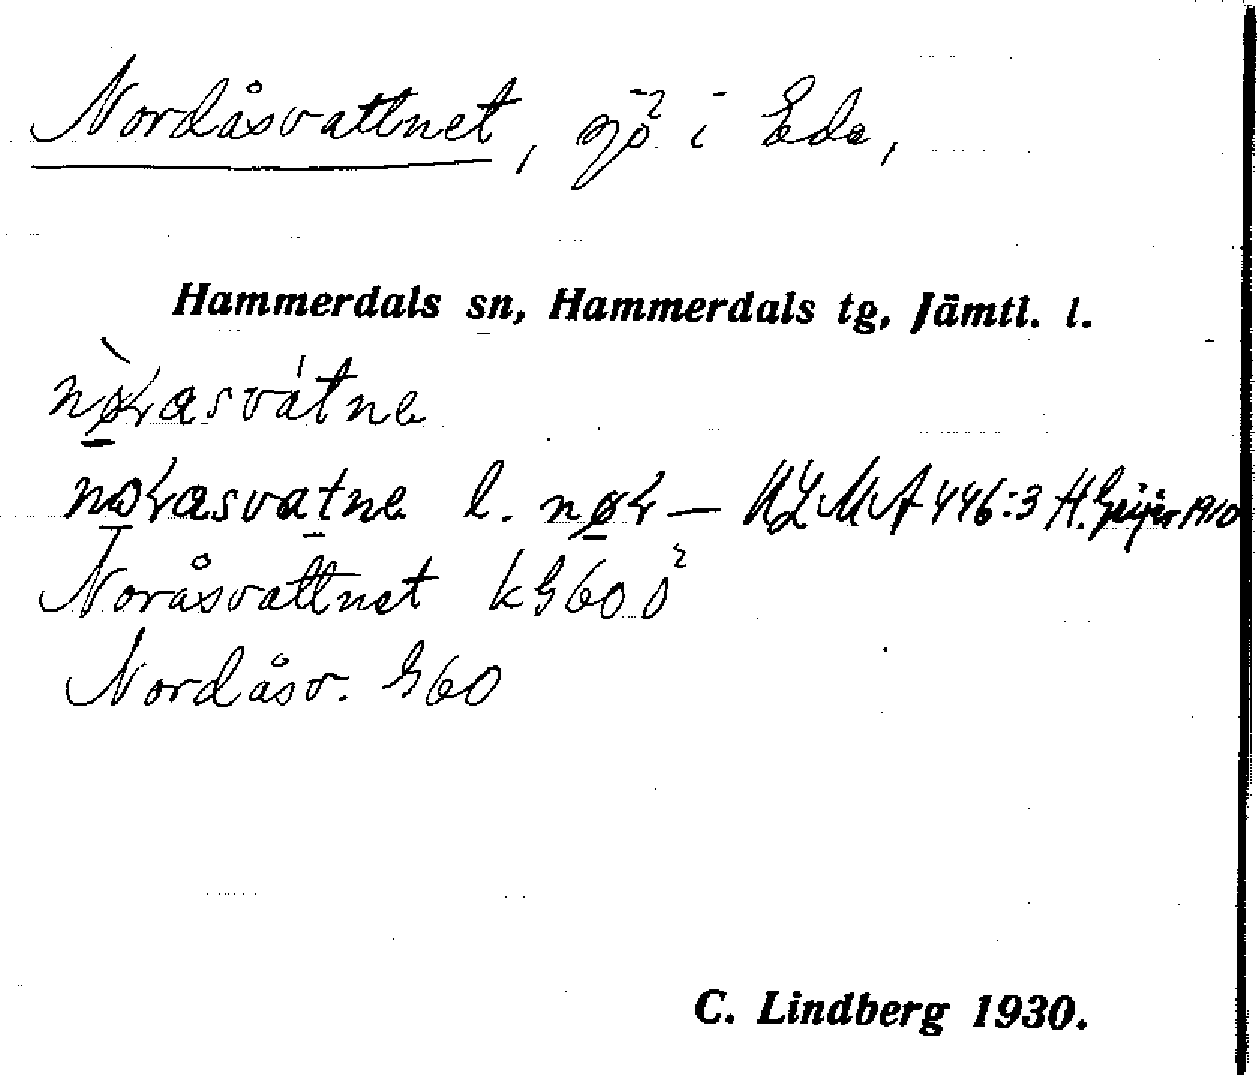 Nordåsvattnet, sjö i Ede,
Hammerdals sn, Hammerdals tg, Jämtl. l.
nørasvatne
nørasvatne l. nør — ULMA 446:3 H. Geijer 1910
Noråsvattnet kG60Ö
Nordåsv. G60
C. Lindberg 1930.